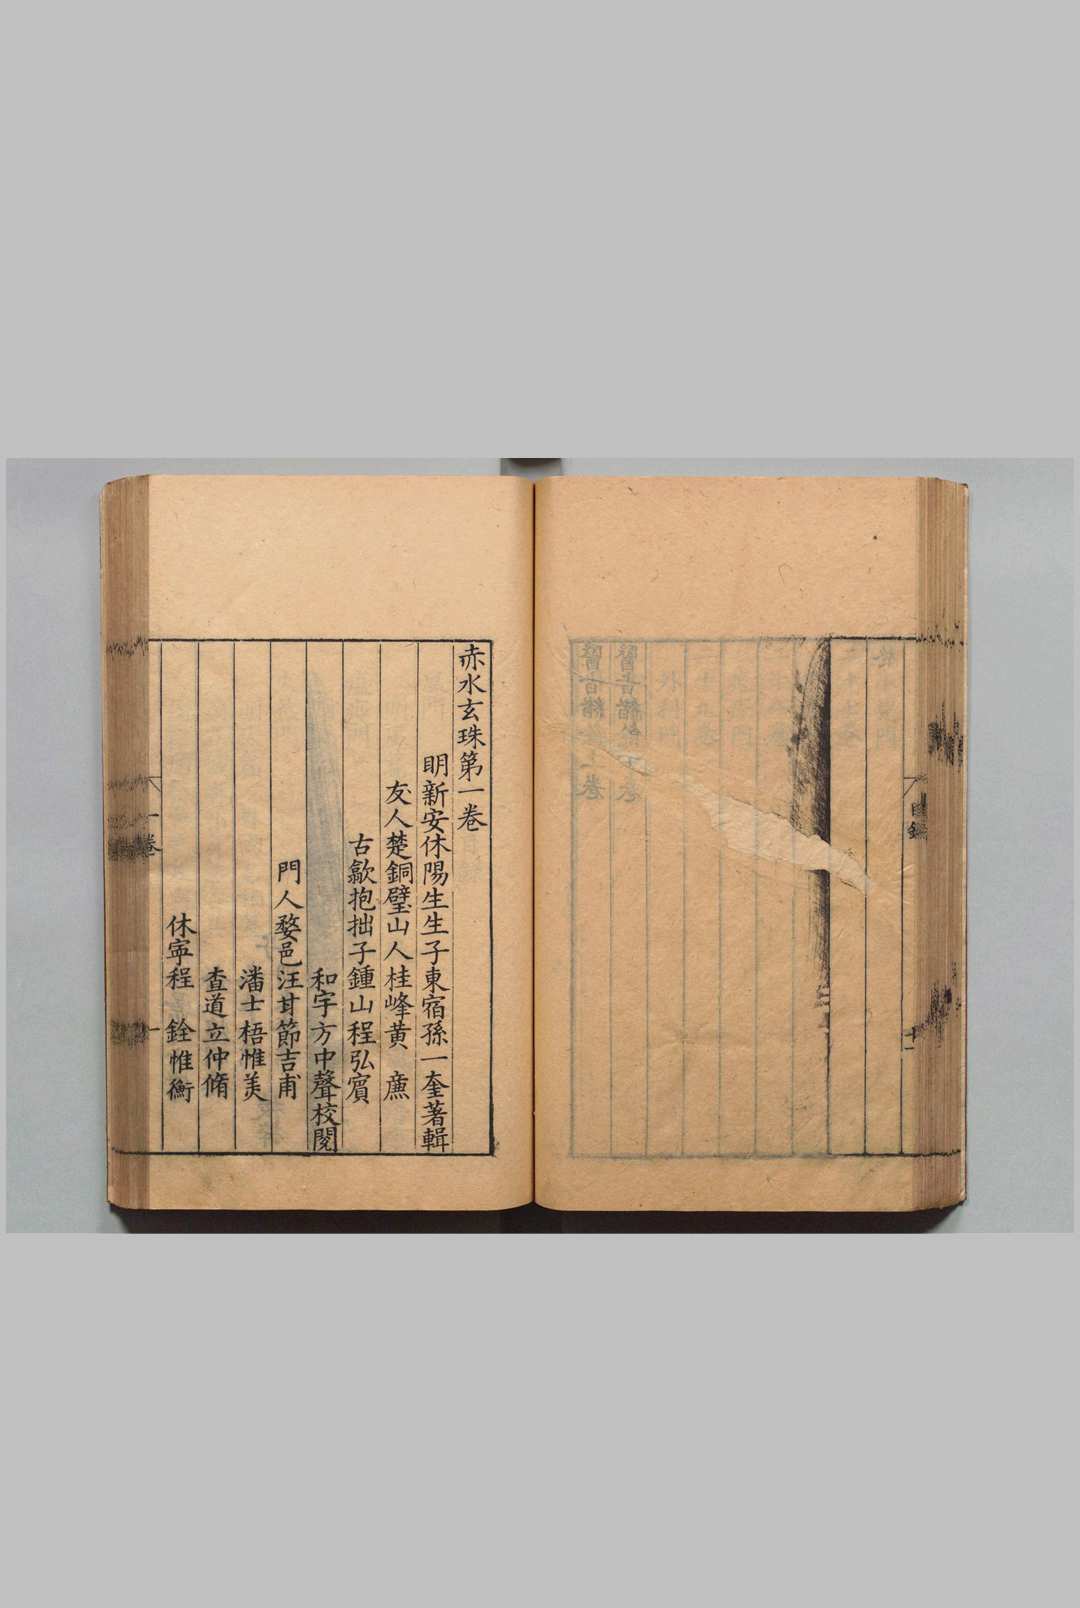 目錄
十一
赤水玄珠第一卷
明新安休陽生生子東宿孫一奎著輯
友人楚銅璧山人桂峰黃廉
古歙抱拙子鍾山程弘賓
和宇方中聲校閱
門人婺邑汪甘節吉甫
潘士梧惟美
查道立仲脩
休寧程銓惟衡
一卷
一